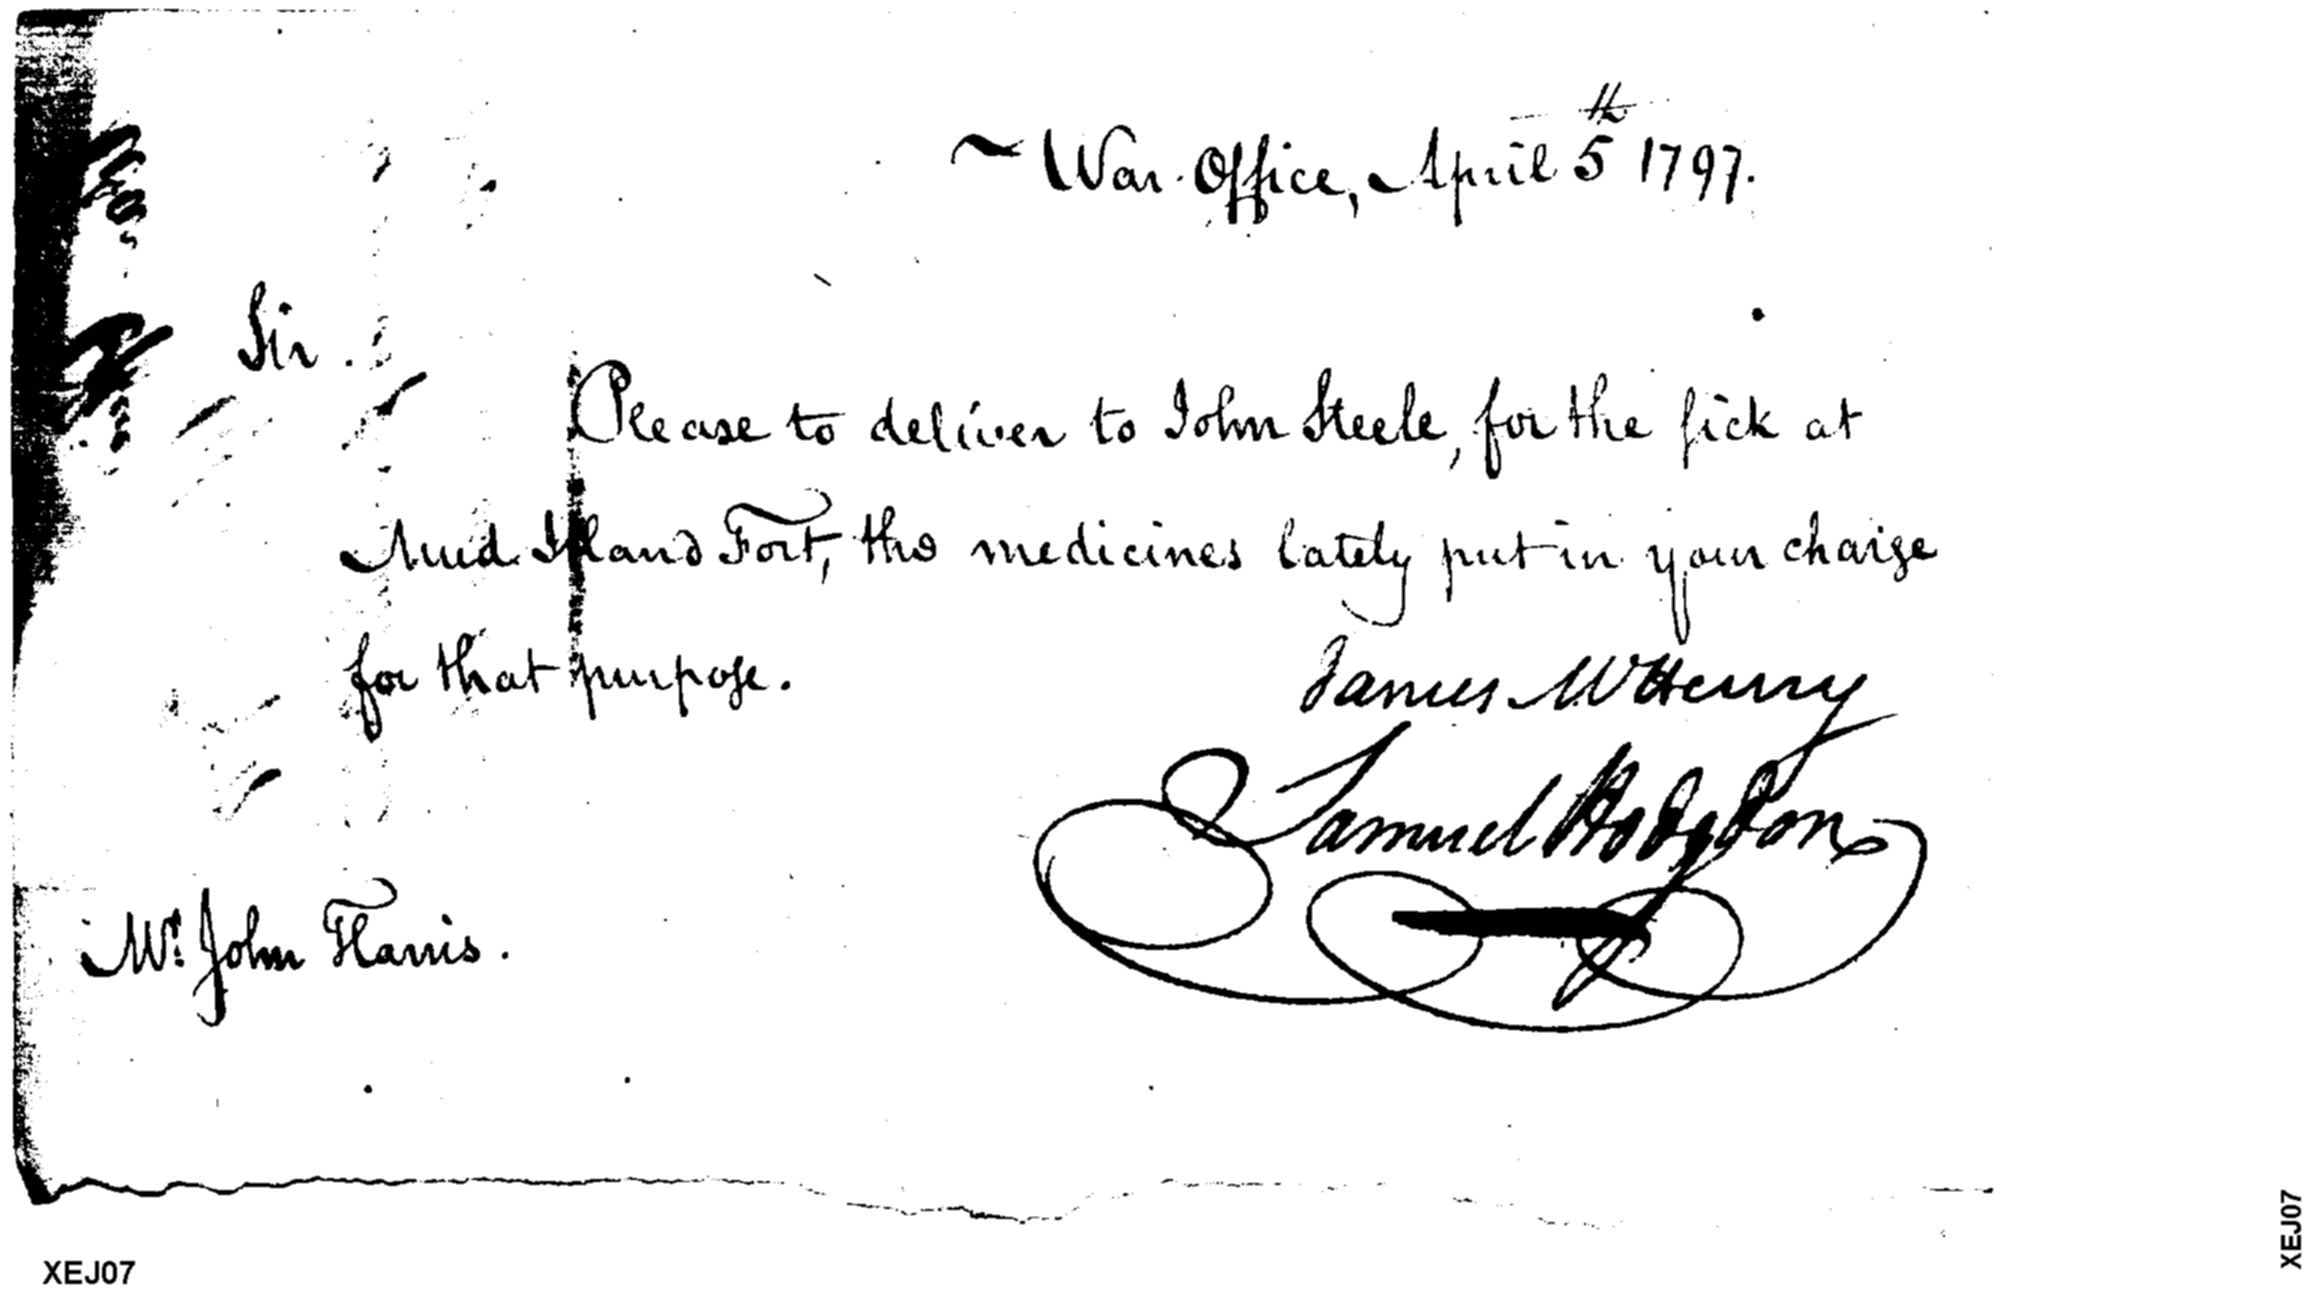 War Office, April 5th 1797.
Sir.
Please to deliver to John Steele, for the sick at
Mud Island Fort, the medicines lately put in your charge
for that purpose.
James McHenry
Samuel Hodgdon
Mr. John Harris.
XEJ07
XEJ07